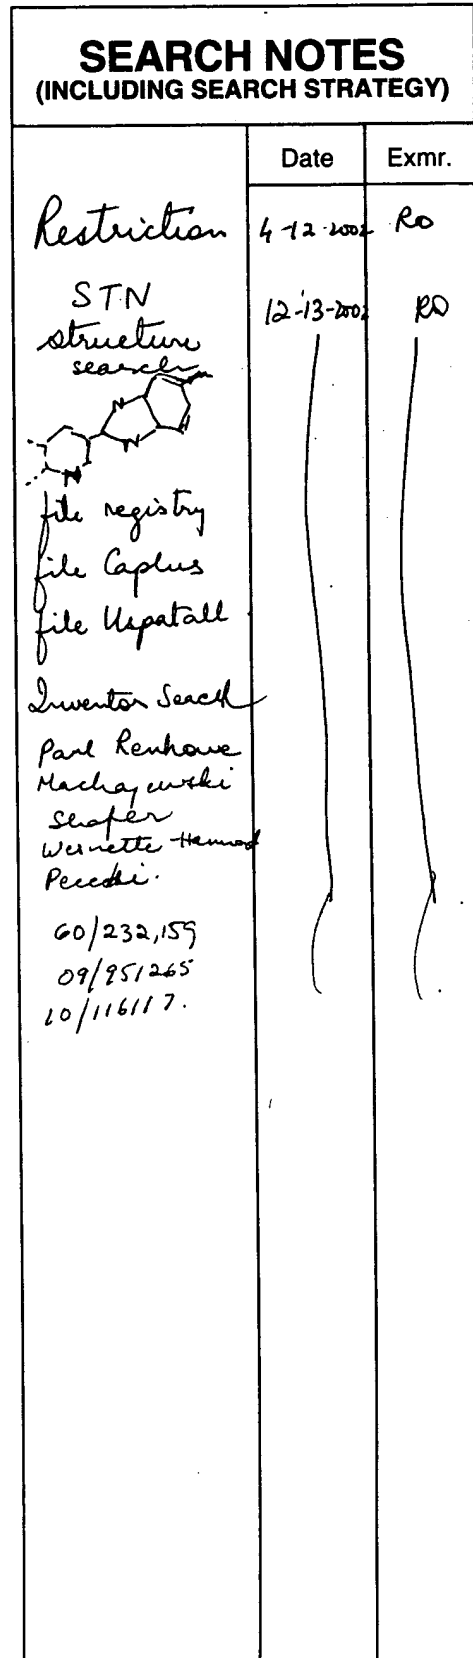 SEARCH NOTES
(INCLUDING SEARCH STRATEGY)
Date Exmr.
Restriction 4-12-2002 RD
STN 12-13-2002 RD
structure
search
N
N
N
file registry
file Caplus
file Uspatall
Inventor Search
Paul Renhowe
Machajewski
Shafer
Wernette Hammond
Pecchi.
60/232,159
09/951265
10/116117.